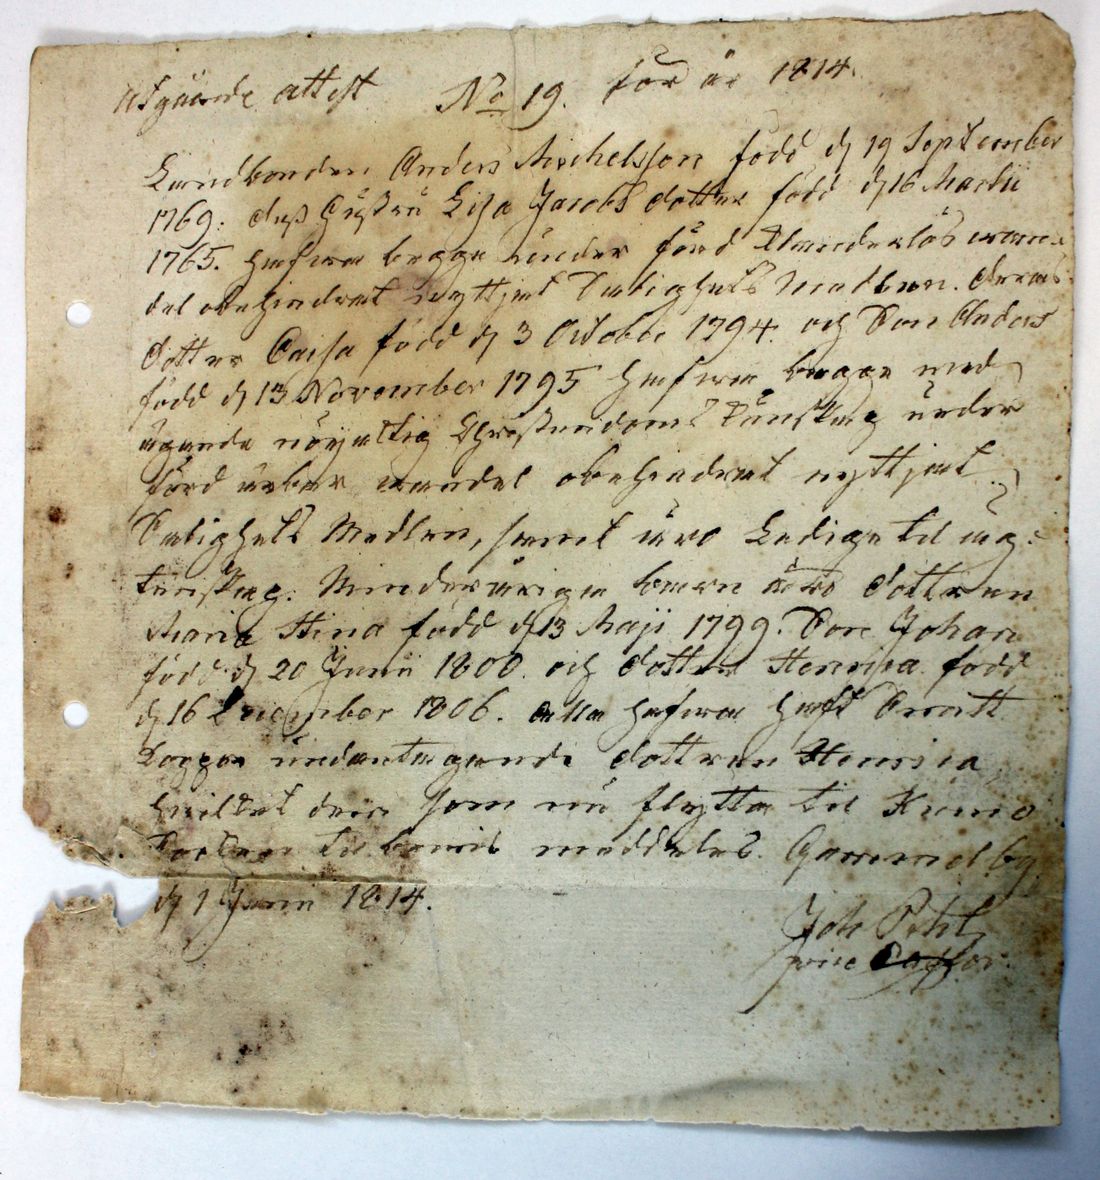 Utgående attest No 19. för år 1814.
Landbonden Anders Michelsson född d 19 September
1769. dess Hustru Lisa Jacobs dotter född d 16 Martii
1765. hafwa begge under förd klanderlös wan-
del obehindrat nyttjat Salighets Medlen. deras
dotter Caisa född d 3 October 1794. och Son Anders
född d 13 November 1795 hafwa begge med
ägande nöjaktig Christendoms Kunskap under
förd ärbar wandel obehindrat nyttjat
Salighets Medlen, samt äro Ledige til äg-
tenskap. Minderåriga barn äro dottren
Maria Stina född d 13 Maji 1799. Son Johan
född d 20 Junii 1800. och dotter Henrica född
d 16 December 1806. alla hafwa haft
Koppor undantagande dottren Henrica
hwilket dem som nu flytta til Kumo
Socken til bewis meddeles. Gammelby
d 1 Junii 1814.
Joh